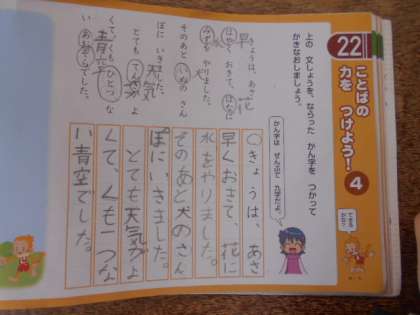 22
ことばの
力を つけよう!
4
できるかな?
上の 文しょうを、ならった かん字を つかって
かきなおしましょう。
かん字は ぜんぶで 九字だよ。
きょうは、あさ
早
はやく おきて、はなに
花
みずを やりました。
水
そのあと いぬの さん
ぽに いきました。
とても てんきが よ
天気
くて、くも ひとつ な
い あおぞらでした。
青空
○きょうは、あさ
早くおきて、花に
水をやりました。
そのあと犬のさん
ぽにいきました。
とても天気がよ
くて、くも一つな
い青空でした。